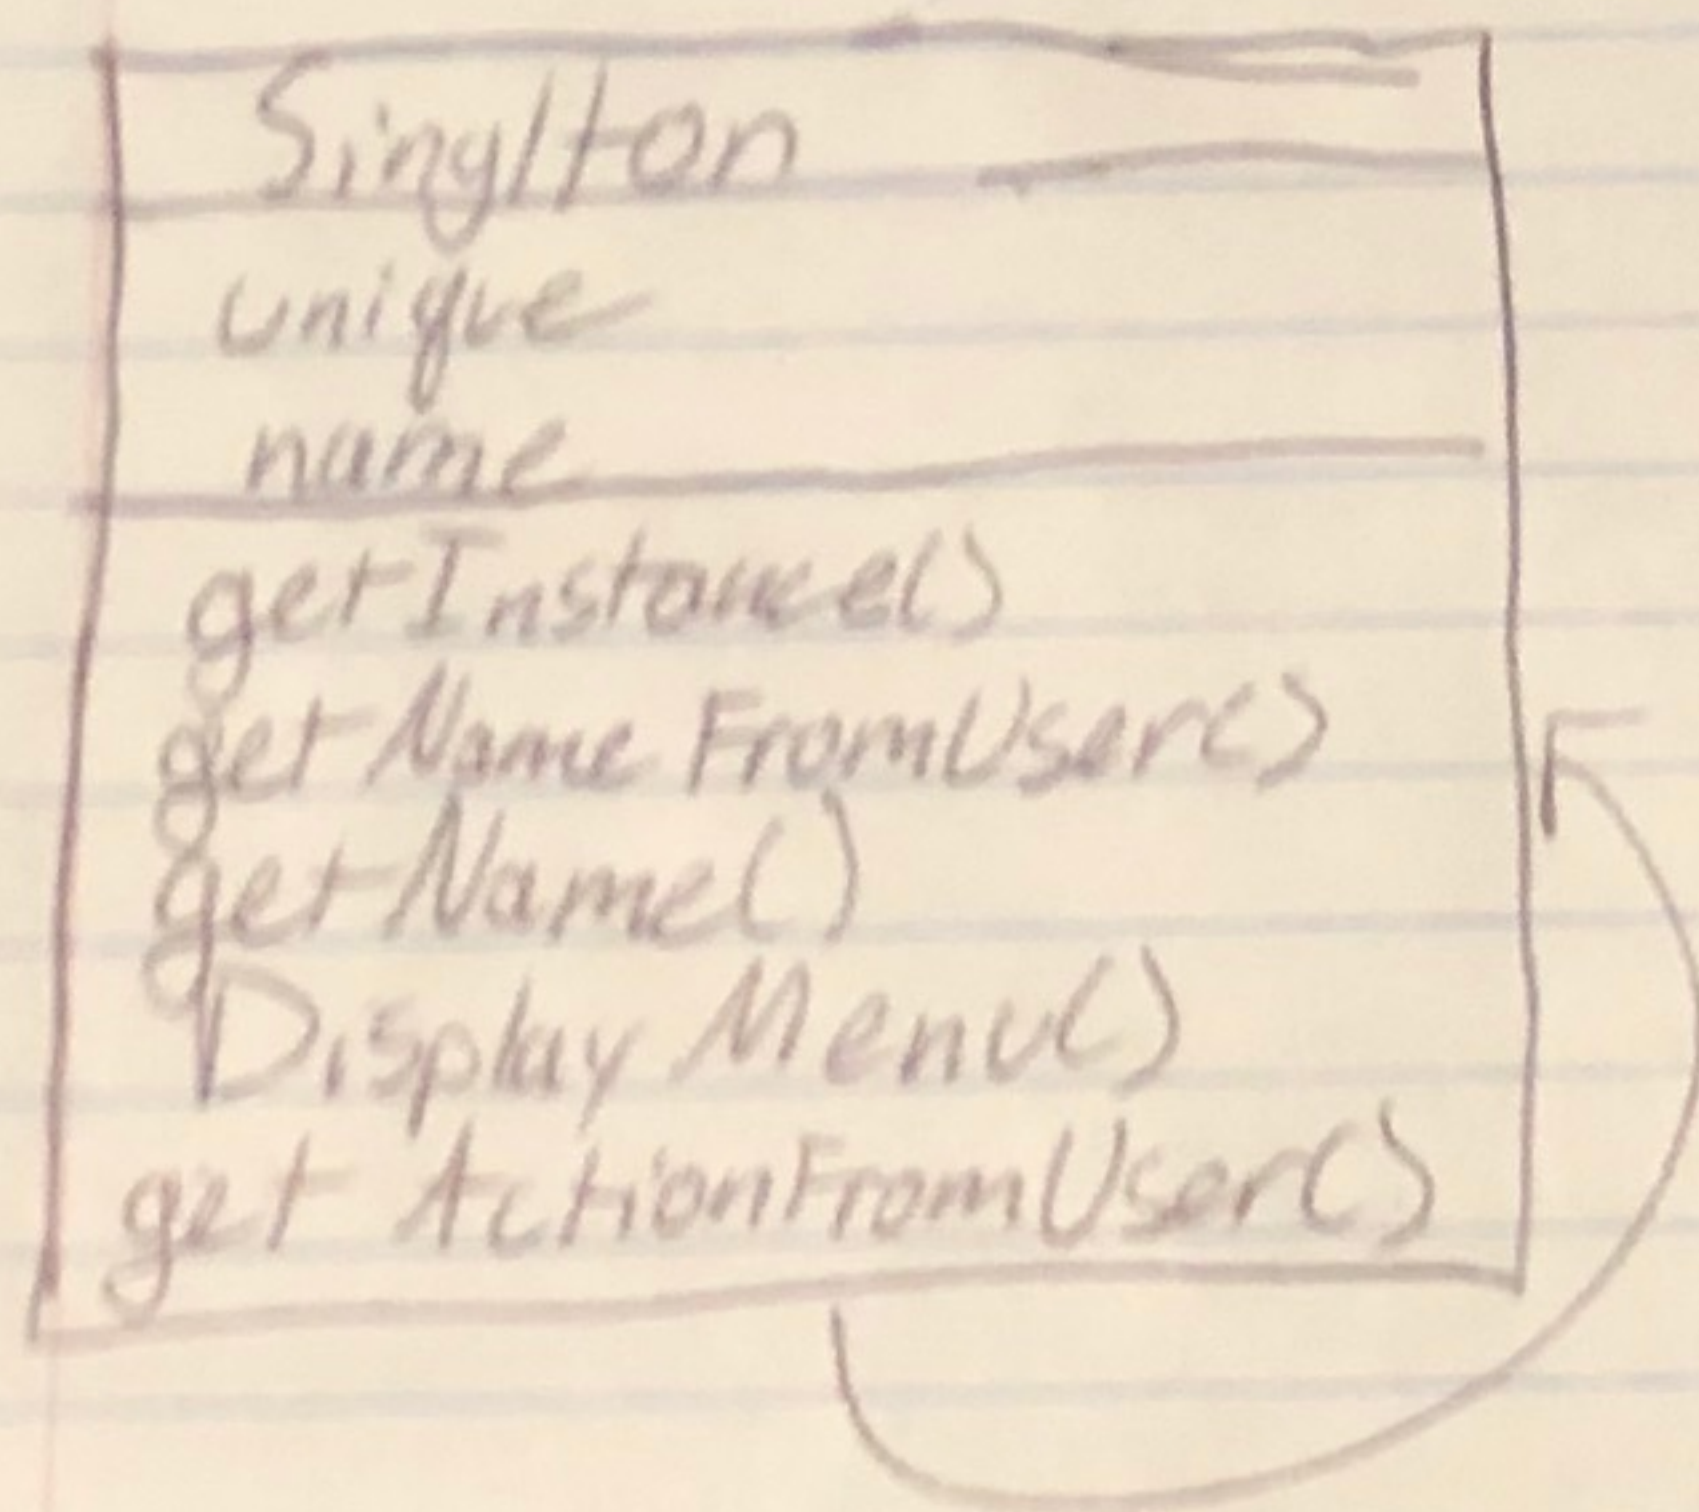 Singlton
unique
name
getInstance()
getNameFromUser()
getName()
DisplayMenu()
getActionFromUser()